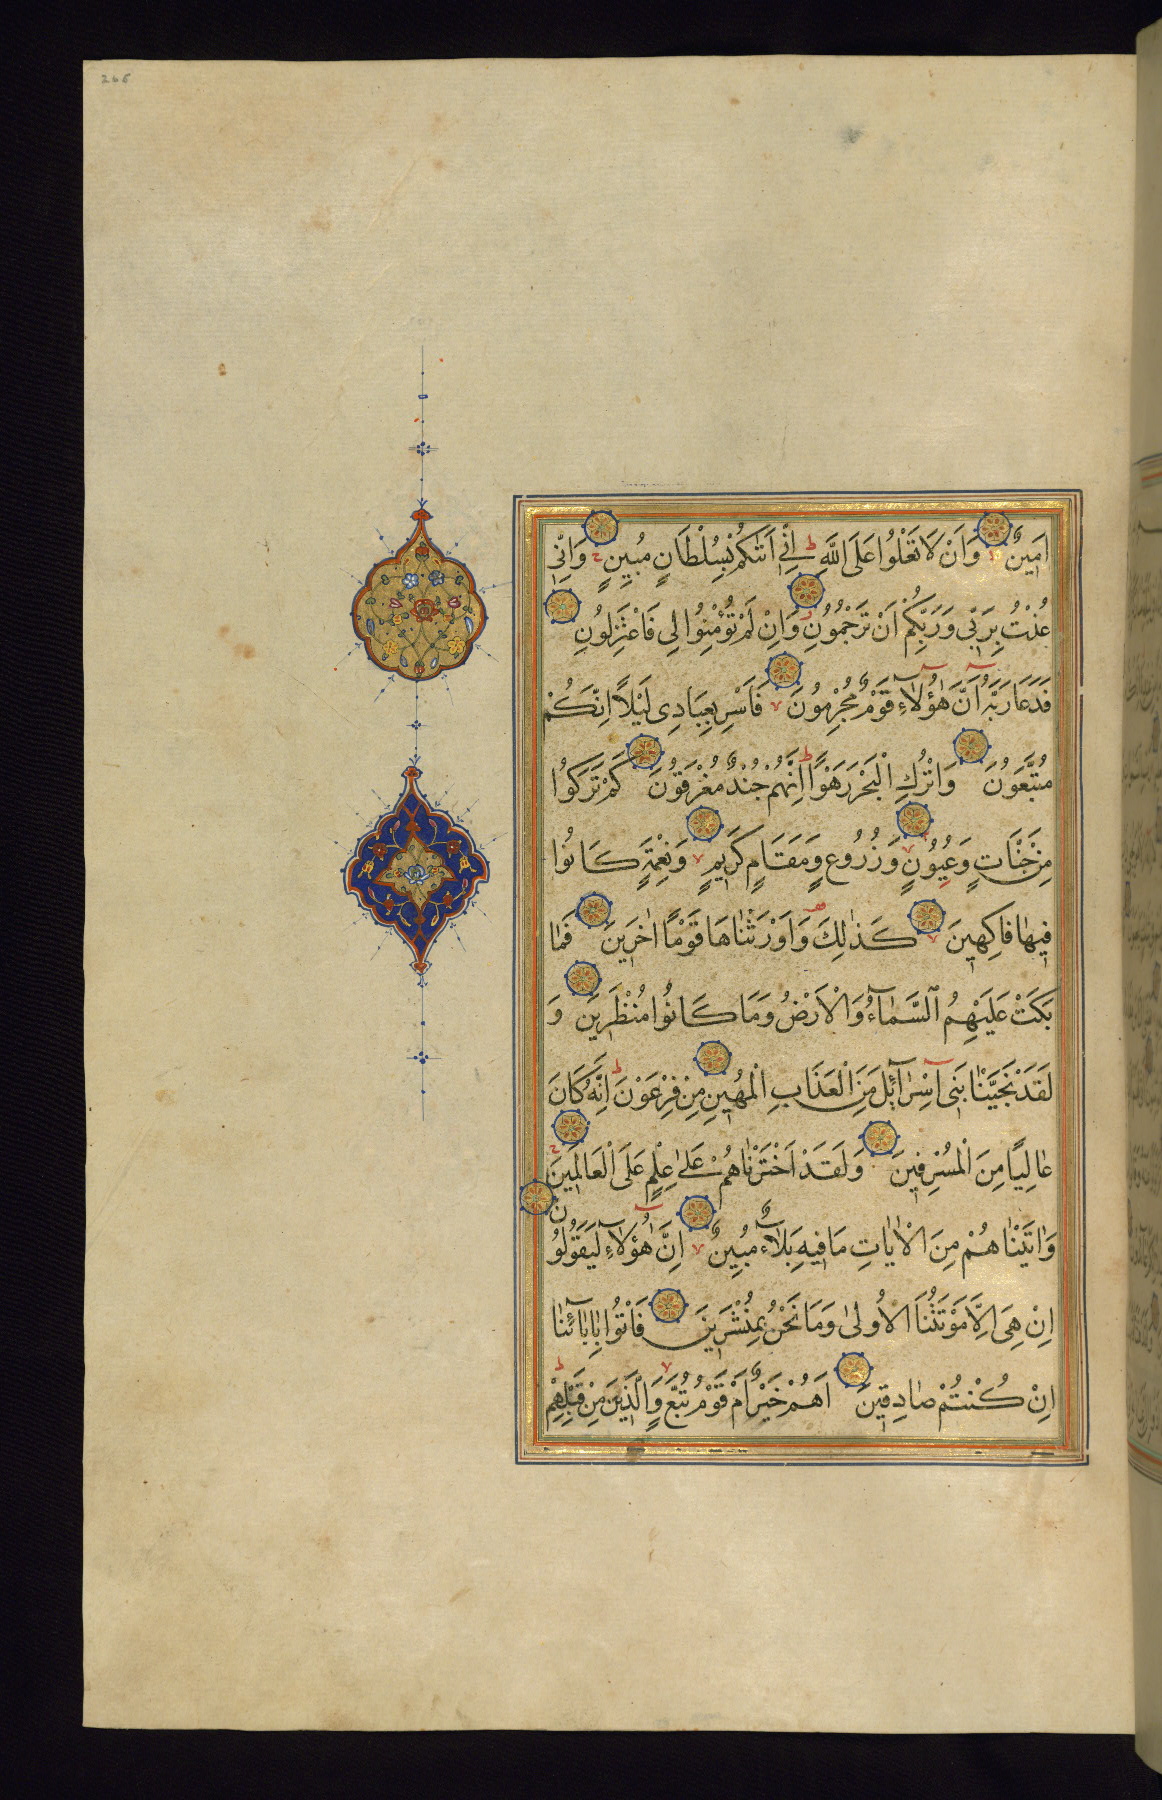 اَمِينٌ وَاَنْ لَا تَعْلُوا عَلَى اللَّهِ اِنِّي اٰتٖيكُمْ بِسُلْطَانٍ مُبِينٍ وَاِنّٖى
عُذْتُ بِرَبّٖى وَرَبِّكُمْ اَنْ تَرْجُمُونِ وَاِنْ لَمْ تُؤْمِنُوا لِى فَاعْتَزِلُونِ
فَدَعَا رَبَّهُ اَنَّ هٰؤُلَاءِ قَوْمٌ مُجْرِمُونَ فَاَسْرِ بِعِبَادِى لَيْلًا اِنَّكُمْ
مُتَّبَعُونَ وَاتْرُكِ الْبَحْرَ رَهْوًا اِنَّهُمْ جُنْدٌ مُغْرَقُونَ كَمْ تَرَكُوا
مِنْ جَنَّاتٍ وَعُيُونٍ وَزُرُوعٍ وَمَقَامٍ كَرِيمٍ وَنِعْمَةٍ كَانُوا
فِيهَا فَاكِهِينَ كَذٰلِكَ وَاَوْرَثْنَاهَا قَوْمًا اٰخَرِينَ فَمَا
بَكَتْ عَلَيْهِمُ السَّمَاءُ وَالْاَرْضُ وَمَا كَانُوا مُنْظَرِينَ وَ
لَقَدْ نَجَّيْنَا بَنِى اِسْرَآئِلَ مِنَ الْعَذَابِ الْمُهِينِ مِنْ فِرْعَوْنَ اِنَّهُ كَانَ
عَالِيًا مِنَ الْمُسْرِفِينَ وَلَقَدْ اخْتَرْنَاهُمْ عَلٰى عِلْمٍ عَلَى الْعَالَمِينَ
وَاٰتَيْنَاهُمْ مِنَ الْاٰيَاتِ مَا فِيهِ بَلَاءٌ مُبِينٌ اِنَّ هٰؤُلَاءِ لَيَقُولُونَ
اِنْ هِىَ اِلَّا مَوْتَتُنَا الْاُولٰى وَمَا نَحْنُ بِمُنْشَرِينَ فَاْتُوا بِاٰبَائِنَا
اِنْ كُنْتُمْ صَادِقِينَ اَهُمْ خَيْرٌ اَمْ قَوْمُ تُبَّعٍ وَالَّذِينَ مِنْ قَبْلِهِمْ